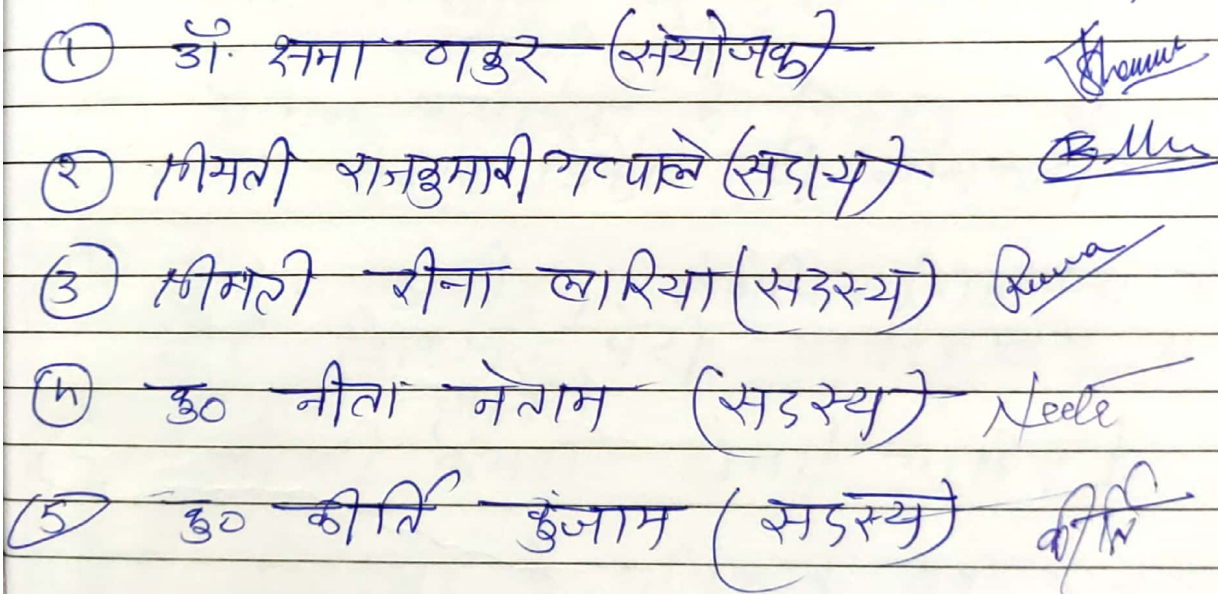 ① डॉ. क्षमा ठाकुर (संयोजक)
② श्रीमती राजकुमारी (सदस्य)
③ श्रीमती रीना लारिया (सदस्य) Reena
④ कु० नीता नेताम (सदस्य) Neeta
⑤ कु० कीर्ति कुंजाम (सदस्य) कीर्ति